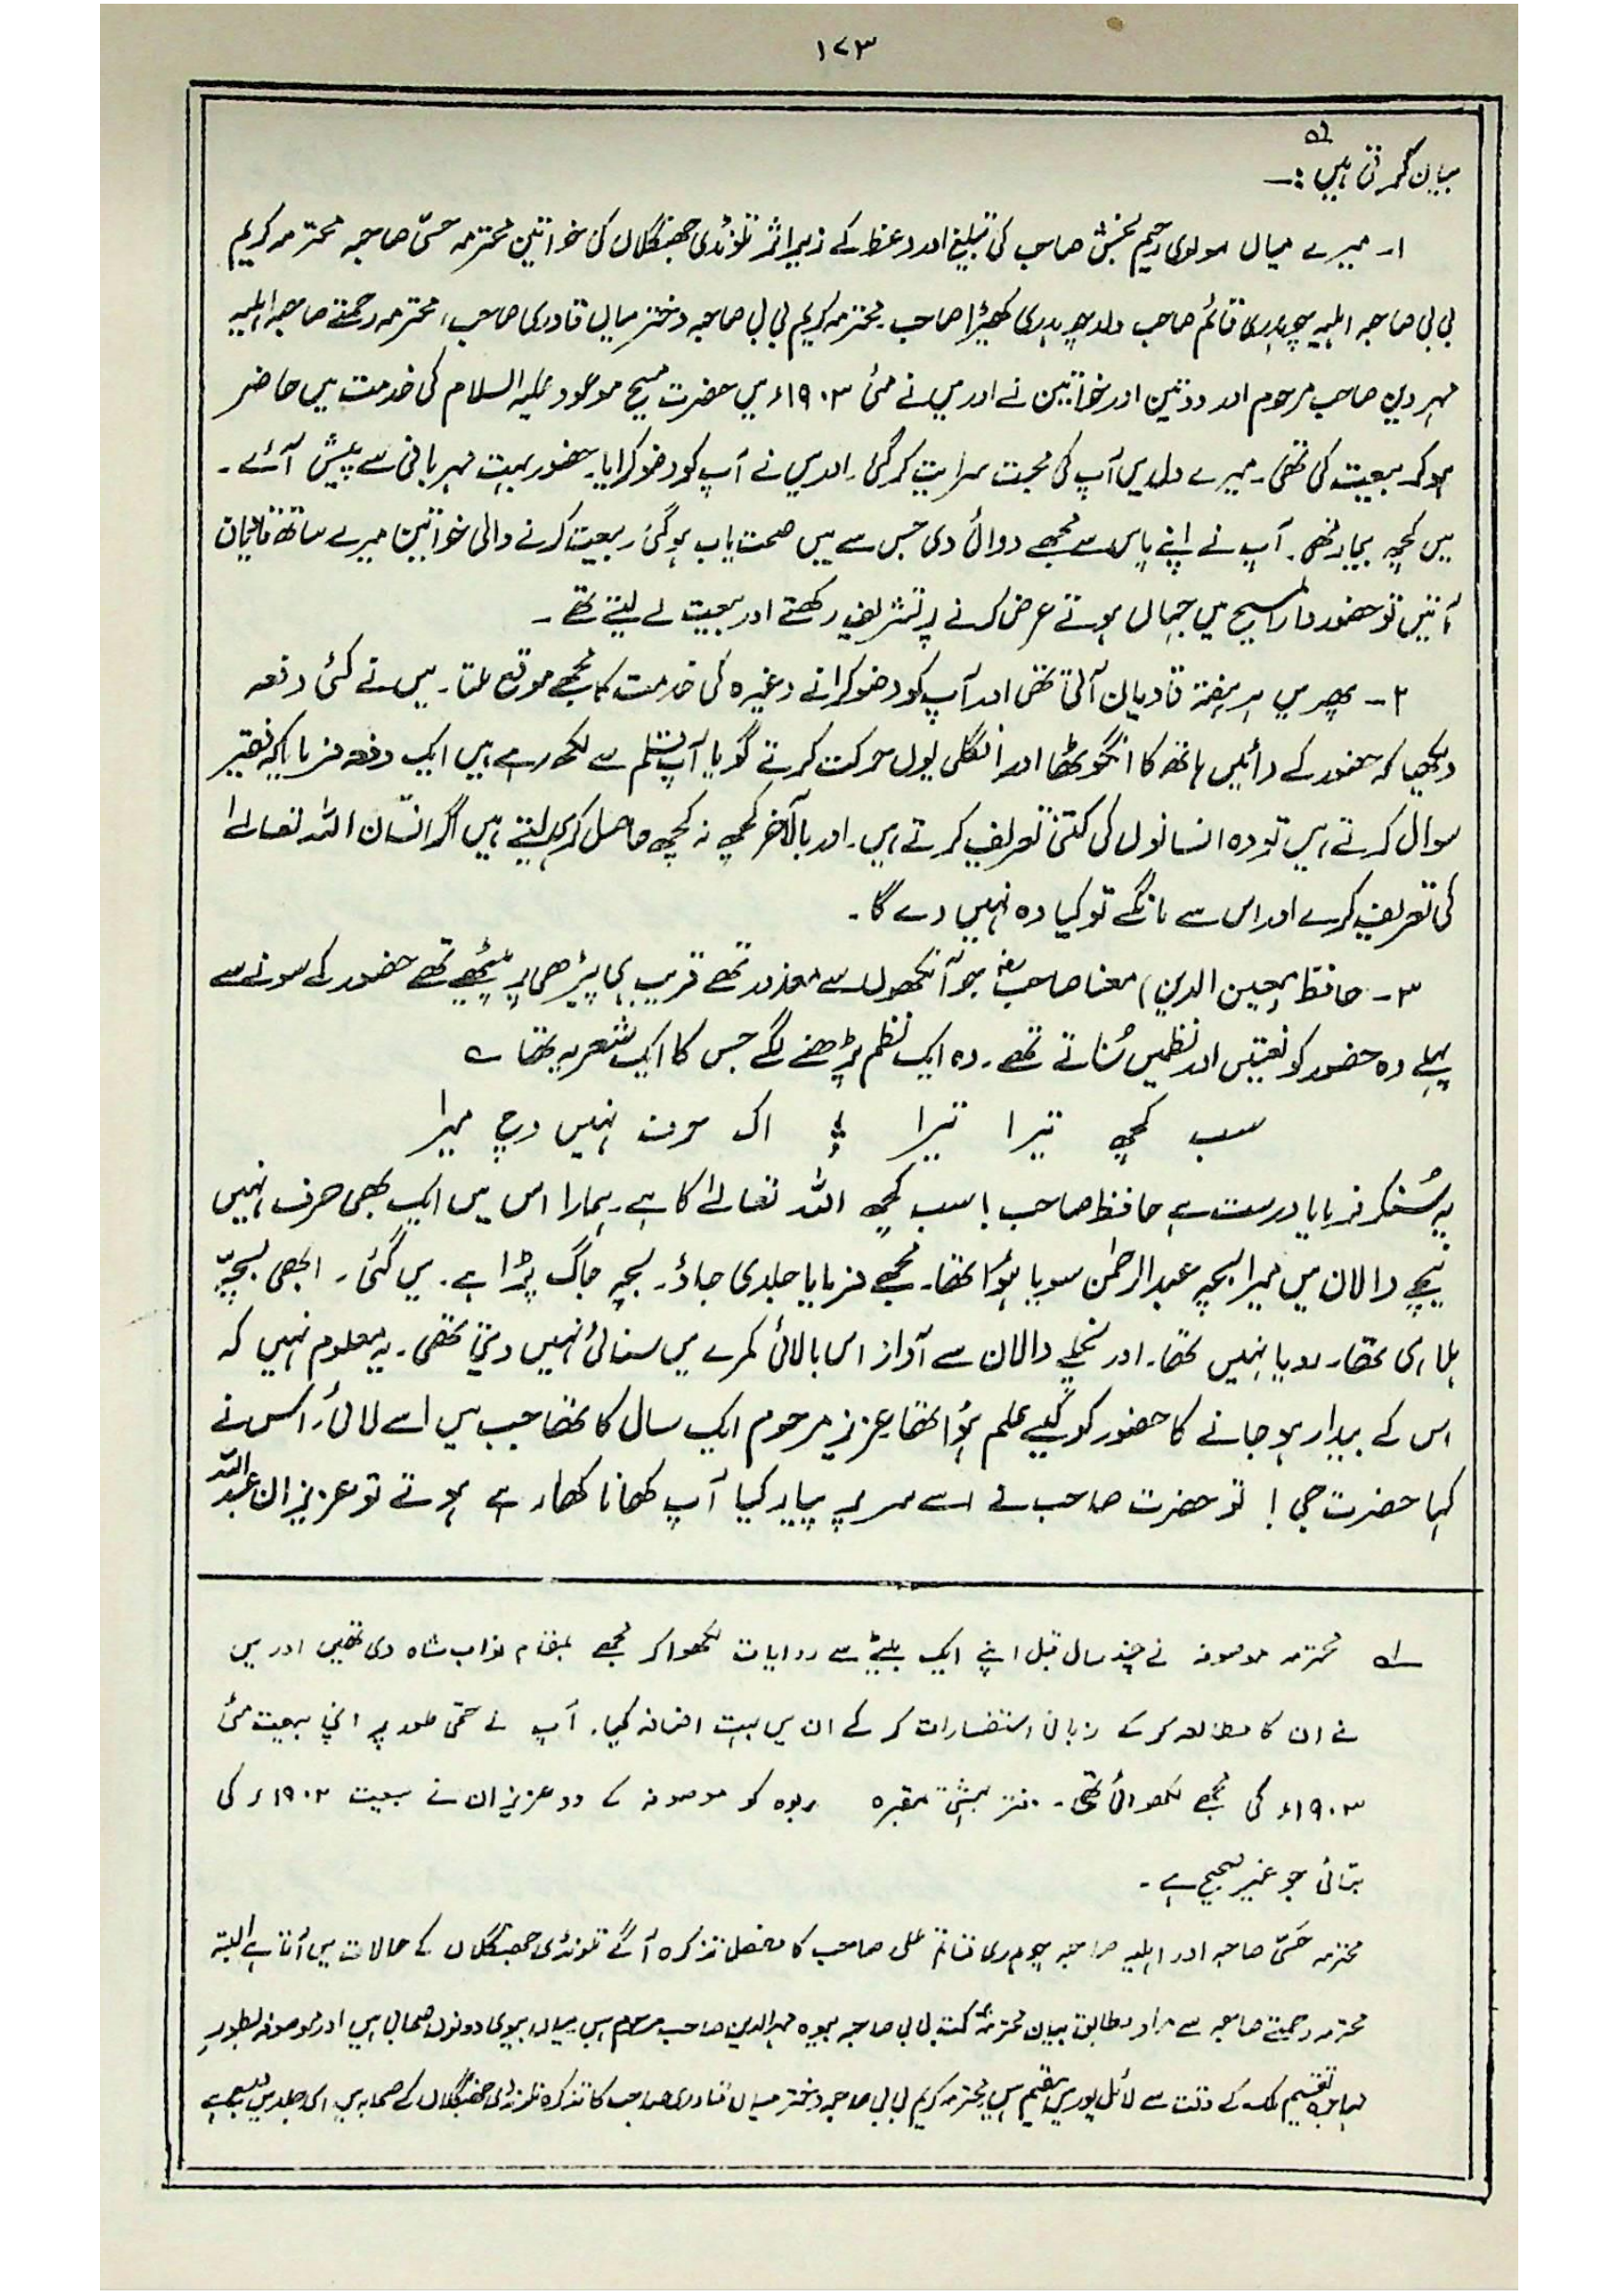 ۱۷۳
بیان کرتی ہیں :۔ لہ
۱۔ میرے میاں مولوی رحیم بخش صاحب کی تبلیغ اور وعظ کے زیر اثر تلونڈی جھنگلاں کی خواتین محترمہ حسّی صاحبہ محترمہ کریم
بی بی صاحبہ اہلیہ چوہدری قائم صاحب ولد چوہدری کھیڑا صاحب۔ محترمہ کریم بی بی صاحبہ دختر میاں قادری صاحب، محترمہ رحمتے صاحبہ اہلیہ
مہر دین صاحب مرحوم اور دو تین اور خواتین نے اور میں نے مئی ۱۹۰۳ء میں حضرت مسیح موعود علیہ السلام کی خدمت میں حاضر
ہو کر بیعت کی تھی۔ میرے دل میں آپ کی محبت سرایت کر گئی۔ اور میں نے آپ کو وضو کرایا۔ حضور بہت مہربانی سے پیش آئے۔
میں کچھ بیمار تھی۔ آپ نے اپنے پاس سے مجھے دوائی دی جس سے میں صحت یاب ہو گئی۔ بیعت کرنے والی خواتین میرے ساتھ قادیان
آتیں تو حضور دار المسیح میں جہاں ہوتے عرض کرنے پر تشریف رکھتے اور بیعت لے لیتے تھے۔
۲۔ پھر میں ہر ہفتہ قادیان آتی تھی اور آپ کو وضو کرانے وغیرہ کی خدمت کا مجھے موقع ملتا۔ میں نے کئی دفعہ
دیکھا کہ حضور کے دائیں ہاتھ کا انگوٹھا اور انگلی یوں حرکت کرتے گویا آپ قلم سے لکھ رہے ہیں ایک دفعہ فرمایا کہ فقیر
سوال کرتے ہیں تو وہ انسانوں کی کتنی تعریف کرتے ہیں۔ اور بالآخر کچھ نہ کچھ حاصل کر ہی لیتے ہیں اگر انسان اللہ تعالےٰ
کی تعریف کرے اور اس سے مانگے تو کیا وہ نہیں دے گا۔
۳۔ حافظ (معین الدین) معنا صاحبؓ جو آنکھوں سے معذور تھے قریب ہی پیڑھی پر بیٹھے تھے حضور کے سونے سے
پہلے وہ حضور کو نعتیں اور نظمیں سُناتے تھے۔ وہ ایک نظم پڑھنے لگے جس کا ایک شعر یہ تھا ؎
سب کچھ تیرا تیرا ؛ اک حرف نہیں وچ میرا
یہ سُنکر فرمایا درست ہے حافظ صاحب! سب کچھ اللہ تعالےٰ کا ہے۔ ہمارا اس میں ایک بھی حرف نہیں
نیچے دالان میں میرا بچہ عبدالرحمٰن سویا ہؤا تھا۔ مجھے فرمایا جلدی جاؤ۔ بچہ جاگ پڑا ہے۔ میں گئی۔ ابھی بچّہ
ہلا ہی تھا۔ رویا نہیں تھا۔ اور نچلے دالان سے آواز اس بالائی کمرے میں سنائی نہیں دیتی تھی۔ یہ معلوم نہیں کہ
اس کے بیدار ہو جانے کا حضور کو کیسے علم ہؤا تھا عزیز مرحوم ایک سال کا تھا جب میں اسے لائی۔ اس نے
کہا حضرت جی! تو حضرت صاحب نے اسے سر پر پیار کیا آپ کھانا کھا رہے ہوتے تو عزیزان عبداللہ
لہ محترمہ موصوفہ نے چند سال قبل اپنے ایک بیٹے سے روایات لکھوا کر مجھے بمقام نواب شاہ دی تھیں اور میں
نے ان کا مطالعہ کر کے زبانی استفسارات کر کے ان میں بہت اضافہ کیا۔ آپ نے حتمی طور پر اپنی بیعت مئی
۱۹۰۳ء کی مجھے لکھوائی تھی۔ دفتر بہشتی مقبرہ ربوہ کو موصوفہ کے دو عزیزان نے بیعت ۱۹۰۲ء کی
بتائی جو غیر صحیح ہے۔
محترمہ حَسّی صاحبہ اور اہلیہ صاحبہ چوہدری قائم علی صاحب کا مفصل تذکرہ آگے تلونڈی جھنگلاں کے حالات میں آتا ہے البتہ
محترمہ رحمتے صاحبہ سے مراد مطابق بیان محترمہ بی بی صاحبہ بیوہ مہر الدین صاحب مرحوم ہیں میاں بیوی دونوں صحابی ہیں اور موصوفہ بطور
مہاجرہ تقسیم ملک کے وقت سے لائل پور میں مقیم ہیں محترمہ کریم بی بی صاحبہ دختر میاں قادری صاحب کا تذکرہ تلونڈی جھنگلاں کے صحابہ میں اسی جلد میں ہے